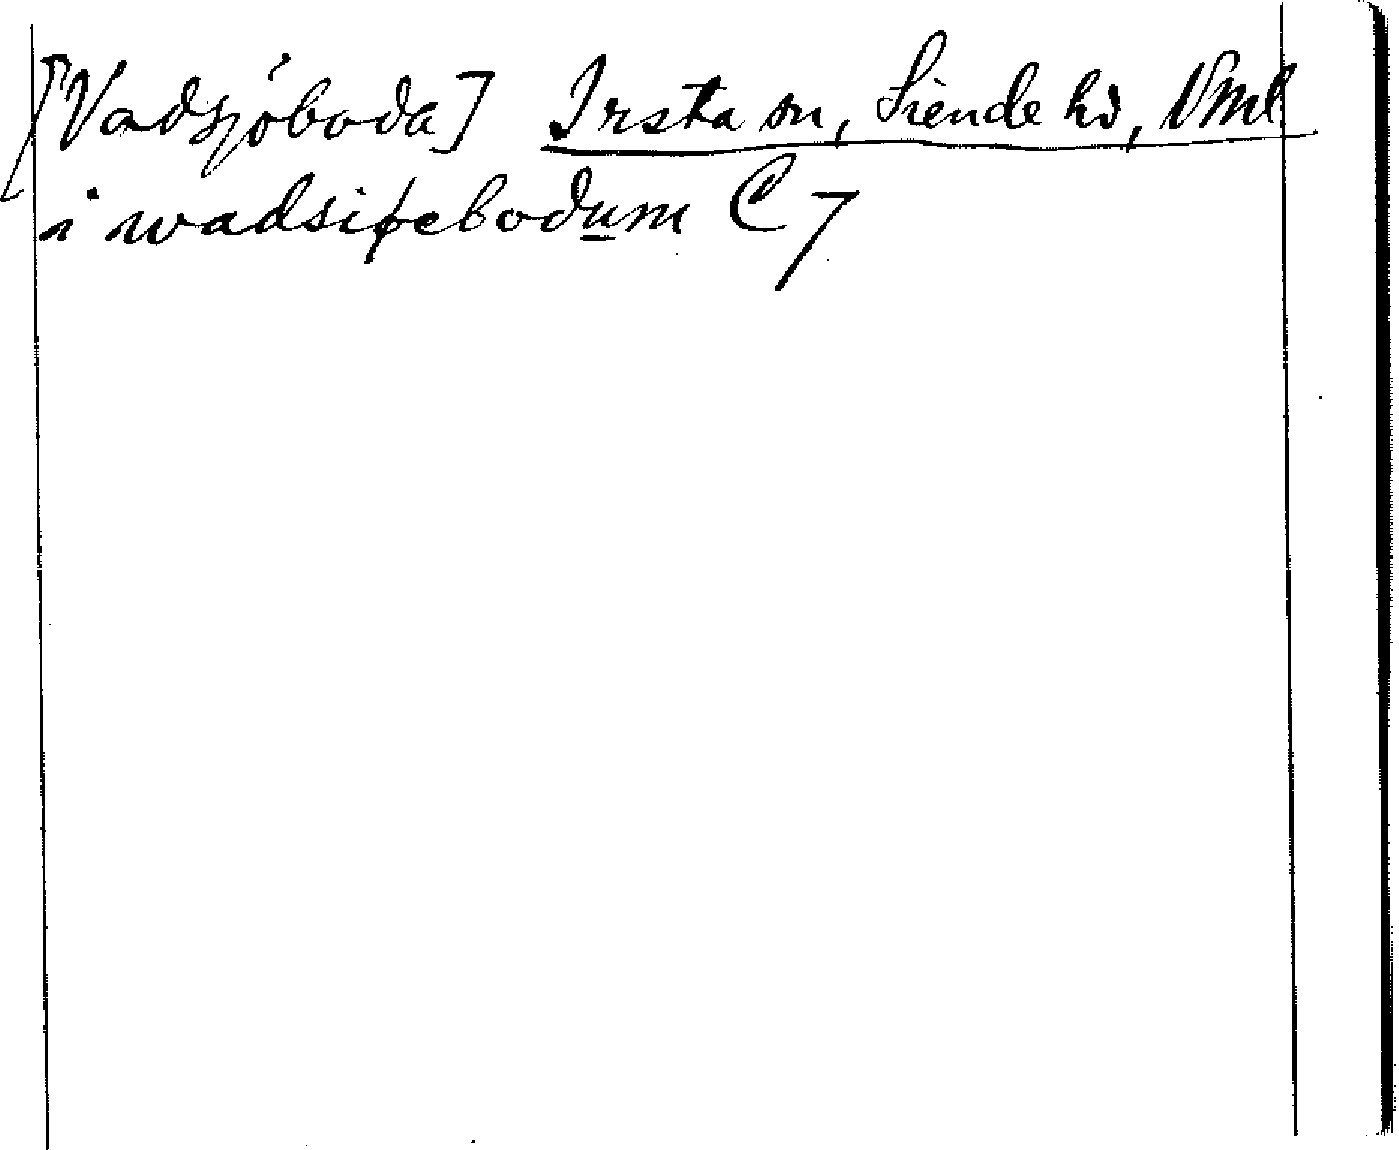 [Vadsjöboda] Irsta sn, Siende hd, Vml
i wadsiøebodum C 7